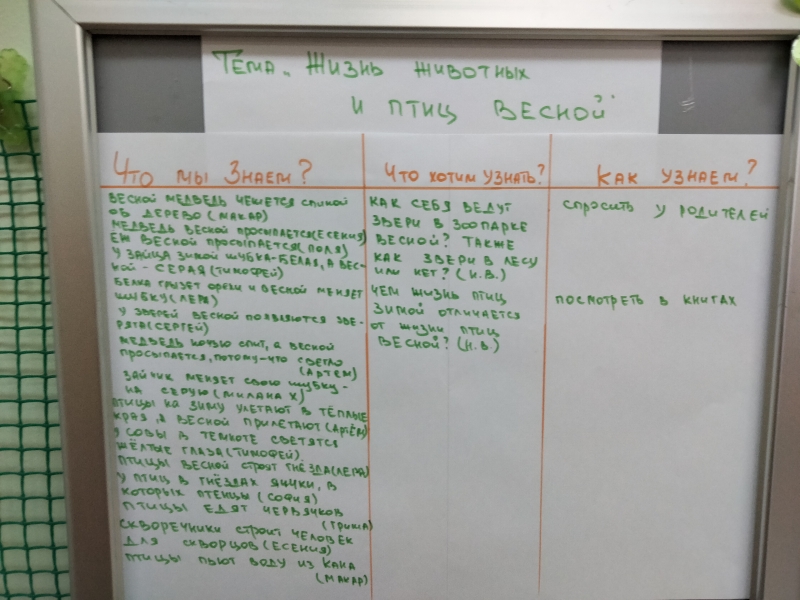 Тема. Жизнь животных
и птиц весной
Что мы знаем?
весной медведь чешется спиной
об дерево (Макар)
медведь весной просыпается (Есения)
ёж весной просыпается (Поля)
у зайца зимой шубка-белая, а вес-
ной - серая (Тимофей)
белка грызет орехи и весной меняет
шубку (Лера)
у зверей весной появляются зве-
рята (Сергей)
медведь ночью спит, а весной
просыпается, потому-что светло
(Артем)
зайчик меняет свою шубку-
на серую (Милана Х)
птицы на зиму улетают в тёплые
края, а весной прилетают (Артём)
у совы в темноте светятся
жёлтые глаза (Тимофей)
птицы весной строят гнёзда (Лера)
у птиц в гнёздах яички, в
которых птенцы (София)
птицы едят червячков
(Гриша)
скворечники строит человек
для скворцов (Есения)
птицы пьют воду из
(Макар)
Что хотим узнать?
как себя ведут
звери в зоопарке
весной? также
как звери в лесу
или нет? (Н.В.)
чем жизнь птиц
зимой отличается
от жизни птиц
весной? (Н.В)
Как узнаем?
спросить у родителей
посмотреть в книгах